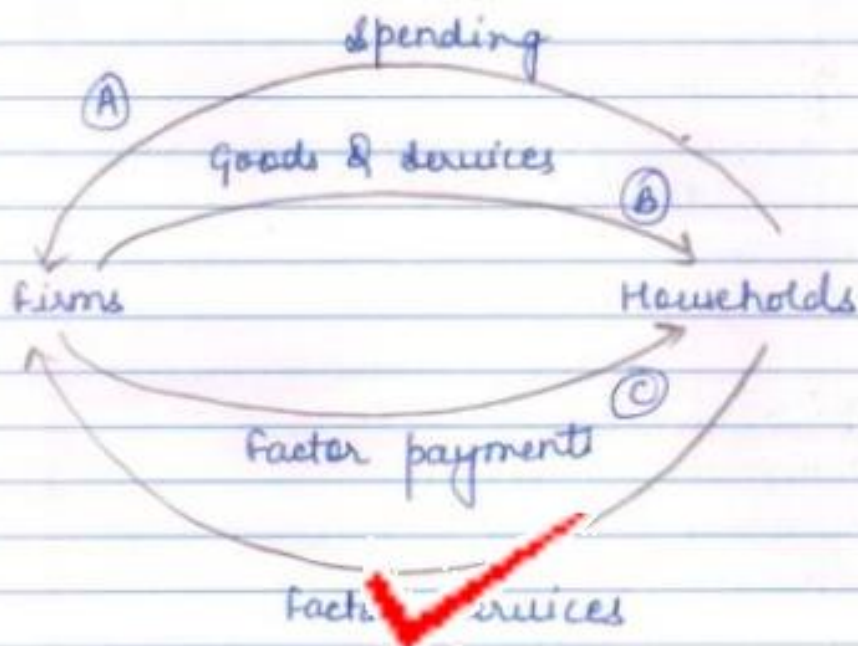 Spending
A
Goods & Services
B
Firms
Households
C
Factor payments
services